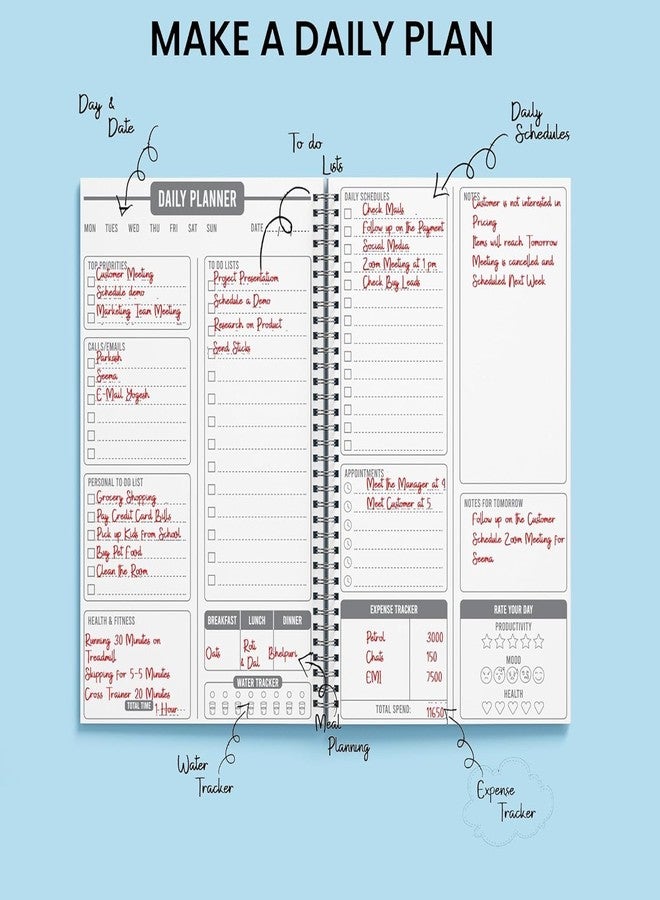 MAKE A DAILY PLAN
Day &
Date
To do
Lists
Daily
Schedules
DAILY PLANNER
MON TUES WED THU FRI SAT SUN
DATE / /
TOP PRIORITIES
Customer Meeting
Schedule demo
Marketing Team Meeting
CALLS/EMAILS
Parkash
Seema
E-Mail Yogesh
PERSONAL TO DO LIST
Grocery Shopping
Pay Credit Card Bills
Pick up Kids from School
Buy Pet Food
Clean the Room
HEALTH & FITNESS
Running 30 Minutes on
Treadmill
Skipping for 5-5 Minutes
Cross Trainer 20 Minutes
TOTAL TIME 1-Hour
TO DO LISTS
Project Presentation
Schedule a Demo
Research on Product
Send Sticks
BREAKFAST LUNCH DINNER
Oats
Roti
& Dal
Bhelpuri
WATER TRACKER
DAILY SCHEDULES
Check Mails
Follow up on the Payment
Social Media
Zoom Meeting at 1 pm
Check Buy Leads
APPOINTMENTS
Meet the Manager at 4
Meet Customer at 5
EXPENSE TRACKER
Petrol 3000
Chats 150
EMI 7500
TOTAL SPEND: 11650
NOTES
Customer is not interested in
Pricing
Items will reach Tomorrow
Meeting is cancelled and
Scheduled Next Week
NOTES FOR TOMORROW
Follow up on the Customer
Schedule Zoom Meeting for
Seema
RATE YOUR DAY
PRODUCTIVITY
MOOD
HEALTH
Meal
Planning
Water
Tracker
Expense
Tracker